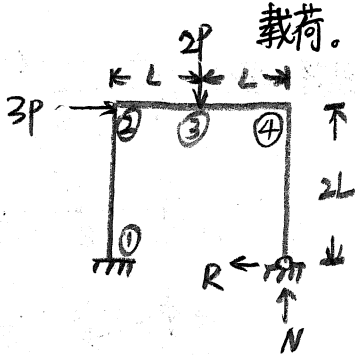 载荷。
2P
L L
3P
② ③ ④
2L
①
R
N